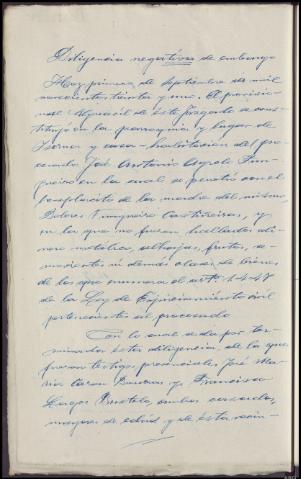 Diligencia negativa de embargo
Hoy primero de Septiembre de mil
novecientos treinta y uno. El provisio-
nal Alguacil de este Juzgado se cons-
tituyó en la parroquia y lugar de
y casa-habitación del pro-
cesado José Antonio
en la cual se penetró con el
beneplácito de la madre del mismo,
Dolores Castiñeiras, y
en la que no fueron hallados di-
nero metálico, alhajas, frutos, se-
movientes ni demás clases de bienes
de los que enumera el artº 1.448
de la Ley de Enjuiciamiento civil
pertenecientes al procesado
Con lo cual se da por ter-
minada esta diligencia, de la que
fueron testigos presenciales José Ma-
ría y Francisco
Lago ambos casados,
mayores de edad y de esta vecin-